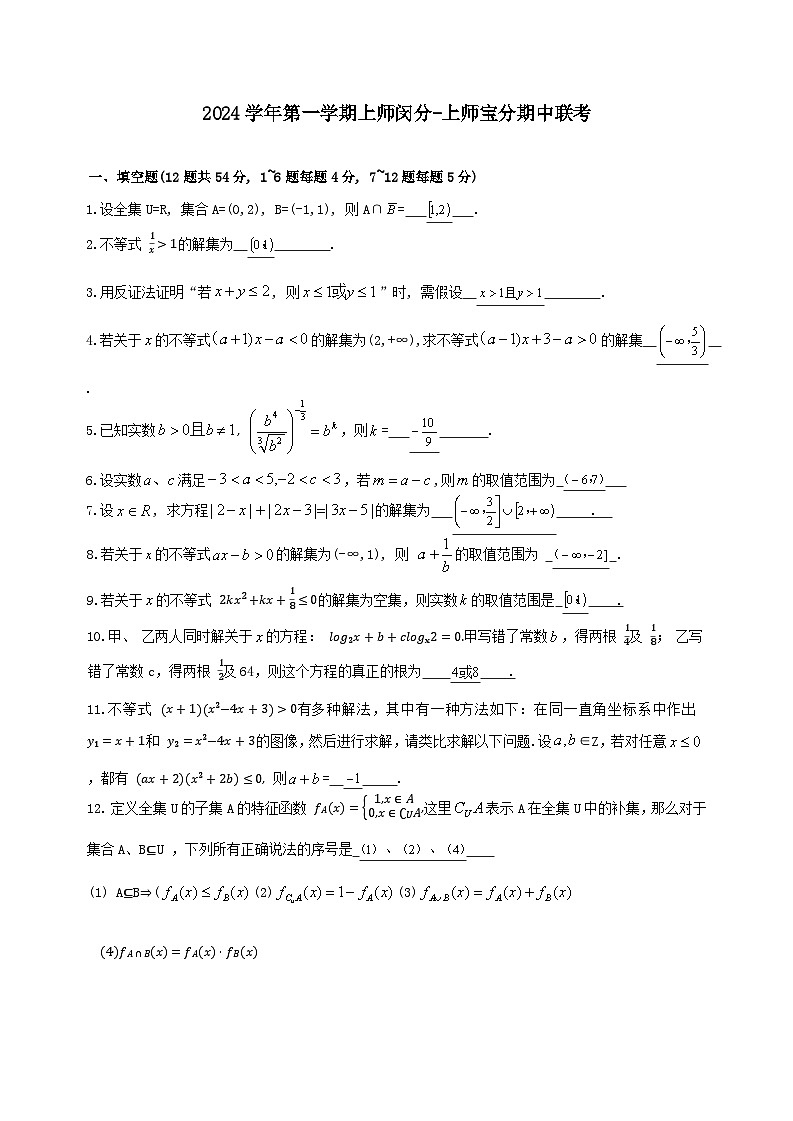 2024学年第一学期上师闵分-上师宝分期中联考
一、填空题(12题共54分, 1~6题每题4分, 7~12题每题5分)
1.设全集U=R, 集合A=(0,2), B=(-1,1), 则 A∩B̅=___[1,2)___.
2.不等式 1/x>1的解集为__(0,1)________.
3.用反证法证明“若x+y≤2, 则x≤1或y≤1”时, 需假设__x>1且y>1________.
4.若关于x的不等式(a+1)x-a<0的解集为(2,+∞),求不等式(a-1)x+3-a>0的解集__(-∞,5/3)__
.
5.已知实数b>0且b≠1, (b⁴/∛b²)^(-1/3)=b^k,则k=___-10/9_______.
6.设实数a、c满足-3<a<5,-2<c<3,若m=a-c,则m的取值范围为_(-6,7)___
7.设x∈R, 求方程|2-x|+|2x-3|=|3x-5|的解集为___(-∞,3/2]∪[2,+∞)_____.__
8.若关于x的不等式ax-b>0的解集为(-∞,1), 则 a+1/b的取值范围为 _(-∞,-2]_.
9.若关于x的不等式 2kx²+kx+1/8≤0的解集为空集, 则实数k的取值范围是_[0,1)____.
10.甲、 乙两人同时解关于x的方程: log₂x+b+clogₓ2=0.甲写错了常数b,得两根 1/4及 1/8; 乙写
错了常数c,得两根 1/2及64,则这个方程的真正的根为____4或8____.
11.不等式 (x+1)(x²-4x+3)>0有多种解法,其中有一种方法如下:在同一直角坐标系中作出
y₁=x+1和 y₂=x²-4x+3的图像,然后进行求解,请类比求解以下问题.设a,b∈Z,若对任意x≤0
,都有 (ax+2)(x²+2b)≤0, 则a+b=__-1_____.
12. 定义全集U的子集A的特征函数 f_A(x)={1,x∈A 0,x∈∁_UA,这里C_UA表示A在全集U中的补集,那么对于
集合A、B⊆U ,下列所有正确说法的序号是_(1)、(2)、(4)____
(1) A⊆B⇒(f_A(x)≤f_B(x) (2)f_{C_uA}(x)=1-f_A(x) (3)f_{A∪B}(x)=f_A(x)+f_B(x)
(4)f_{A∩B}(x)=f_A(x)·f_B(x)